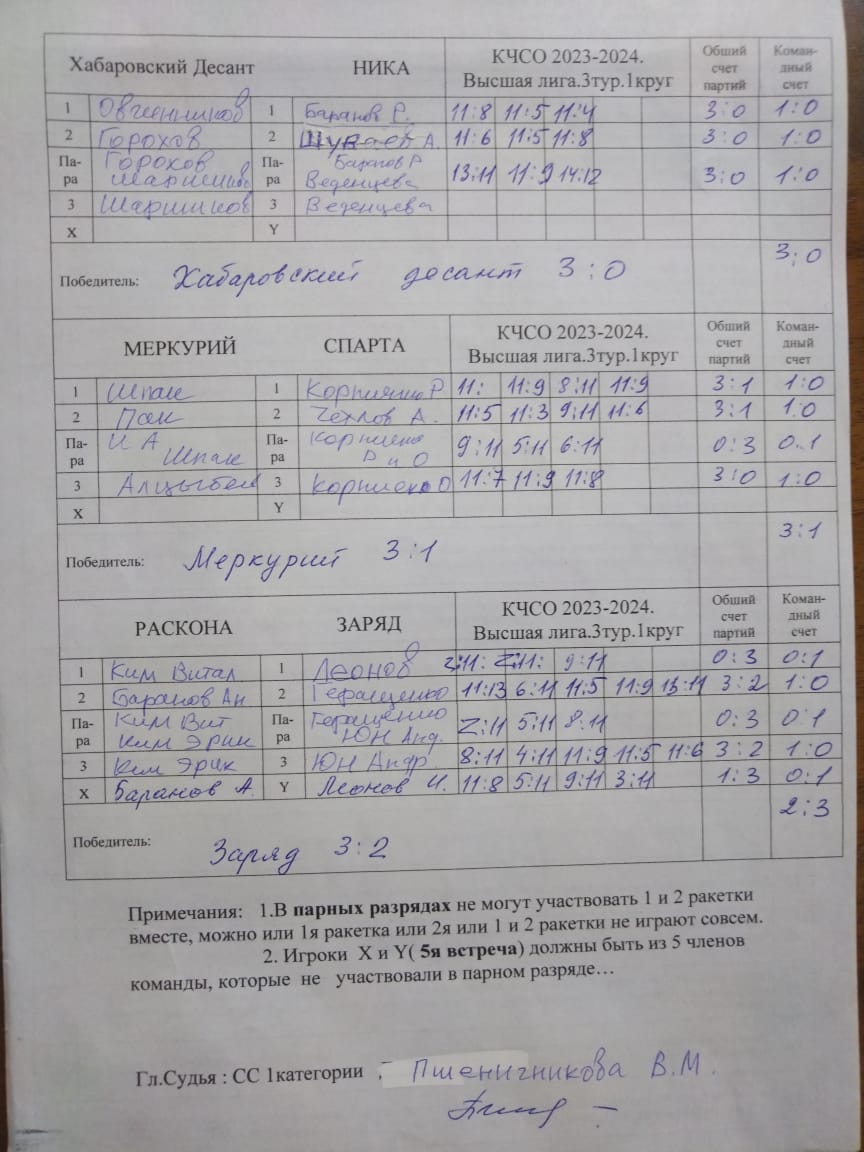 Хабаровский Десант НИКА КЧСО 2023-2024. Высшая лига.3тур.1круг Общий счет партий Коман-дный счет
1 Овчинников 1 Баранов Р. 11:8 11:5 11:4 3:0 1:0
2 Горохов 2 А. 11:6 11:5 11:8 3:0 1:0
Па-ра Горохов Шаршиков Па-ра Баранов Р Веденцева 13:11 11:9 14:12 3:0 1:0
3 Шаршиков 3 Веденцева
X Y
3:0
Победитель: Хабаровский десант 3:0
МЕРКУРИЙ СПАРТА КЧСО 2023-2024. Высшая лига.3тур.1круг Общий счет партий Коман-дный счет
1 Шпак 1 Корниенко Р 11: 11:9 8:11 11:9 3:1 1:0
2 Пак 2 Чехлов А. 11:5 11:3 9:11 11:6 3:1 1:0
Па-ра И А Шпак Па-ра Корниенко Р и О 9:11 5:11 6:11 0:3 0:1
3 3 Корниенко О 11:7 11:9 11:8 3:0 1:0
X Y
3:1
Победитель: Меркурий 3:1
РАСКОНА ЗАРЯД КЧСО 2023-2024. Высшая лига.3тур.1круг Общий счет партий Коман-дный счет
1 Ким Витал 1 Леонов 9:11 0:3 0:1
2 Баранов Ан 2 Геращенко 11:13 6:11 11:5 11:9 13:11 3:2 1:0
Па-ра Ким Вит Ким Эрик Па-ра Геращенко ЮН Анд. 2:11 5:11 8:11 0:3 0:1
3 Ким Эрик 3 ЮН Андр. 8:11 4:11 11:9 11:5 11:6 3:2 1:0
X Баранов А. Y Леонов И. 11:8 5:11 9:11 3:11 1:3 0:1
2:3
Победитель: Заряд 3:2
Примечания: 1.В парных разрядах не могут участвовать 1 и 2 ракетки
вместе, можно или 1я ракетка или 2я или 1 и 2 ракетки не играют совсем.
2. Игроки X и Y( 5я встреча) должны быть из 5 членов
команды, которые не участвовали в парном разряде…
Гл.Судья : СС 1категории Пшеничникова В.М.